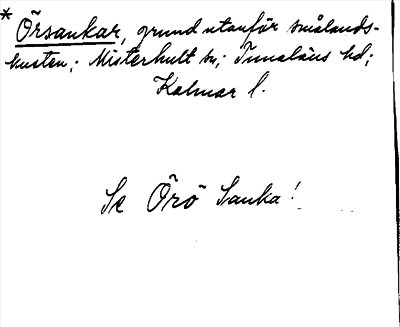 * Örsankar, grund utanför smålands-
kusten; Misterhult sn; Tunaläns hd;
Kalmar l.
Se Örö Sanka!